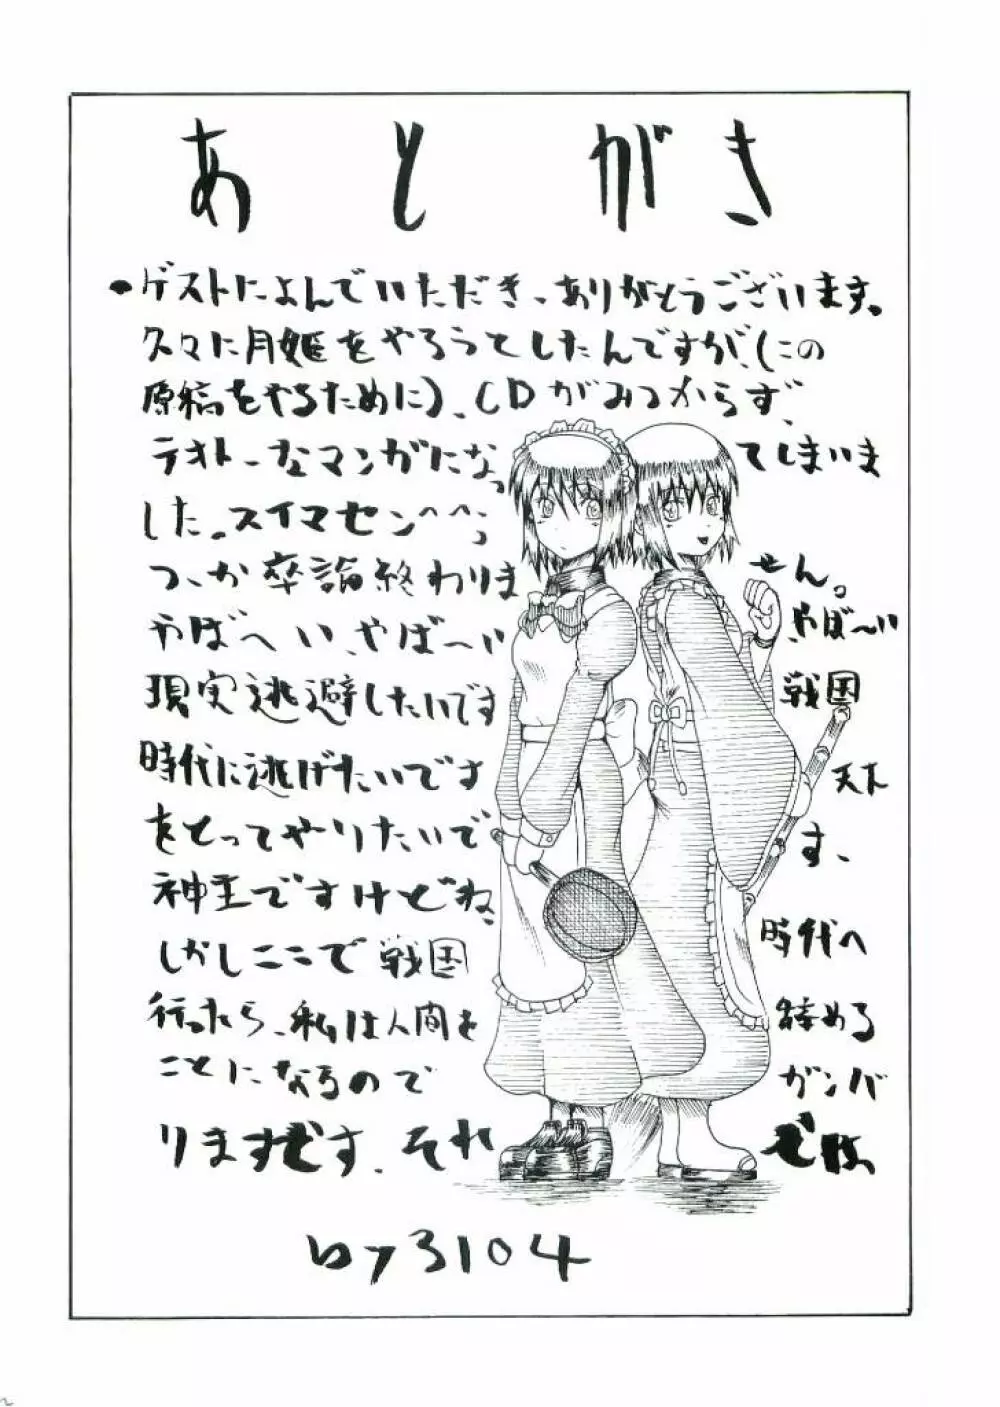 あとがき
・ゲストによんでいただき、ありがとうございます。
久々に月姫をやろうとしたんですが、(この
原稿をやるために)、CDがみつからず、
テキトーなマンガになってしまいま
した。スイマセン^^;
つーか卒論終わりません。
やばへい、やば〜いやば〜い
現実逃避したいです戦国
時代に逃げたいです天下
をとってやりたいです、
神主ですけどね、
しかしここで戦国時代へ
行ったら、私は人間を辞める
ことになるのでガンバ
りますぞです、それでは。
by3104